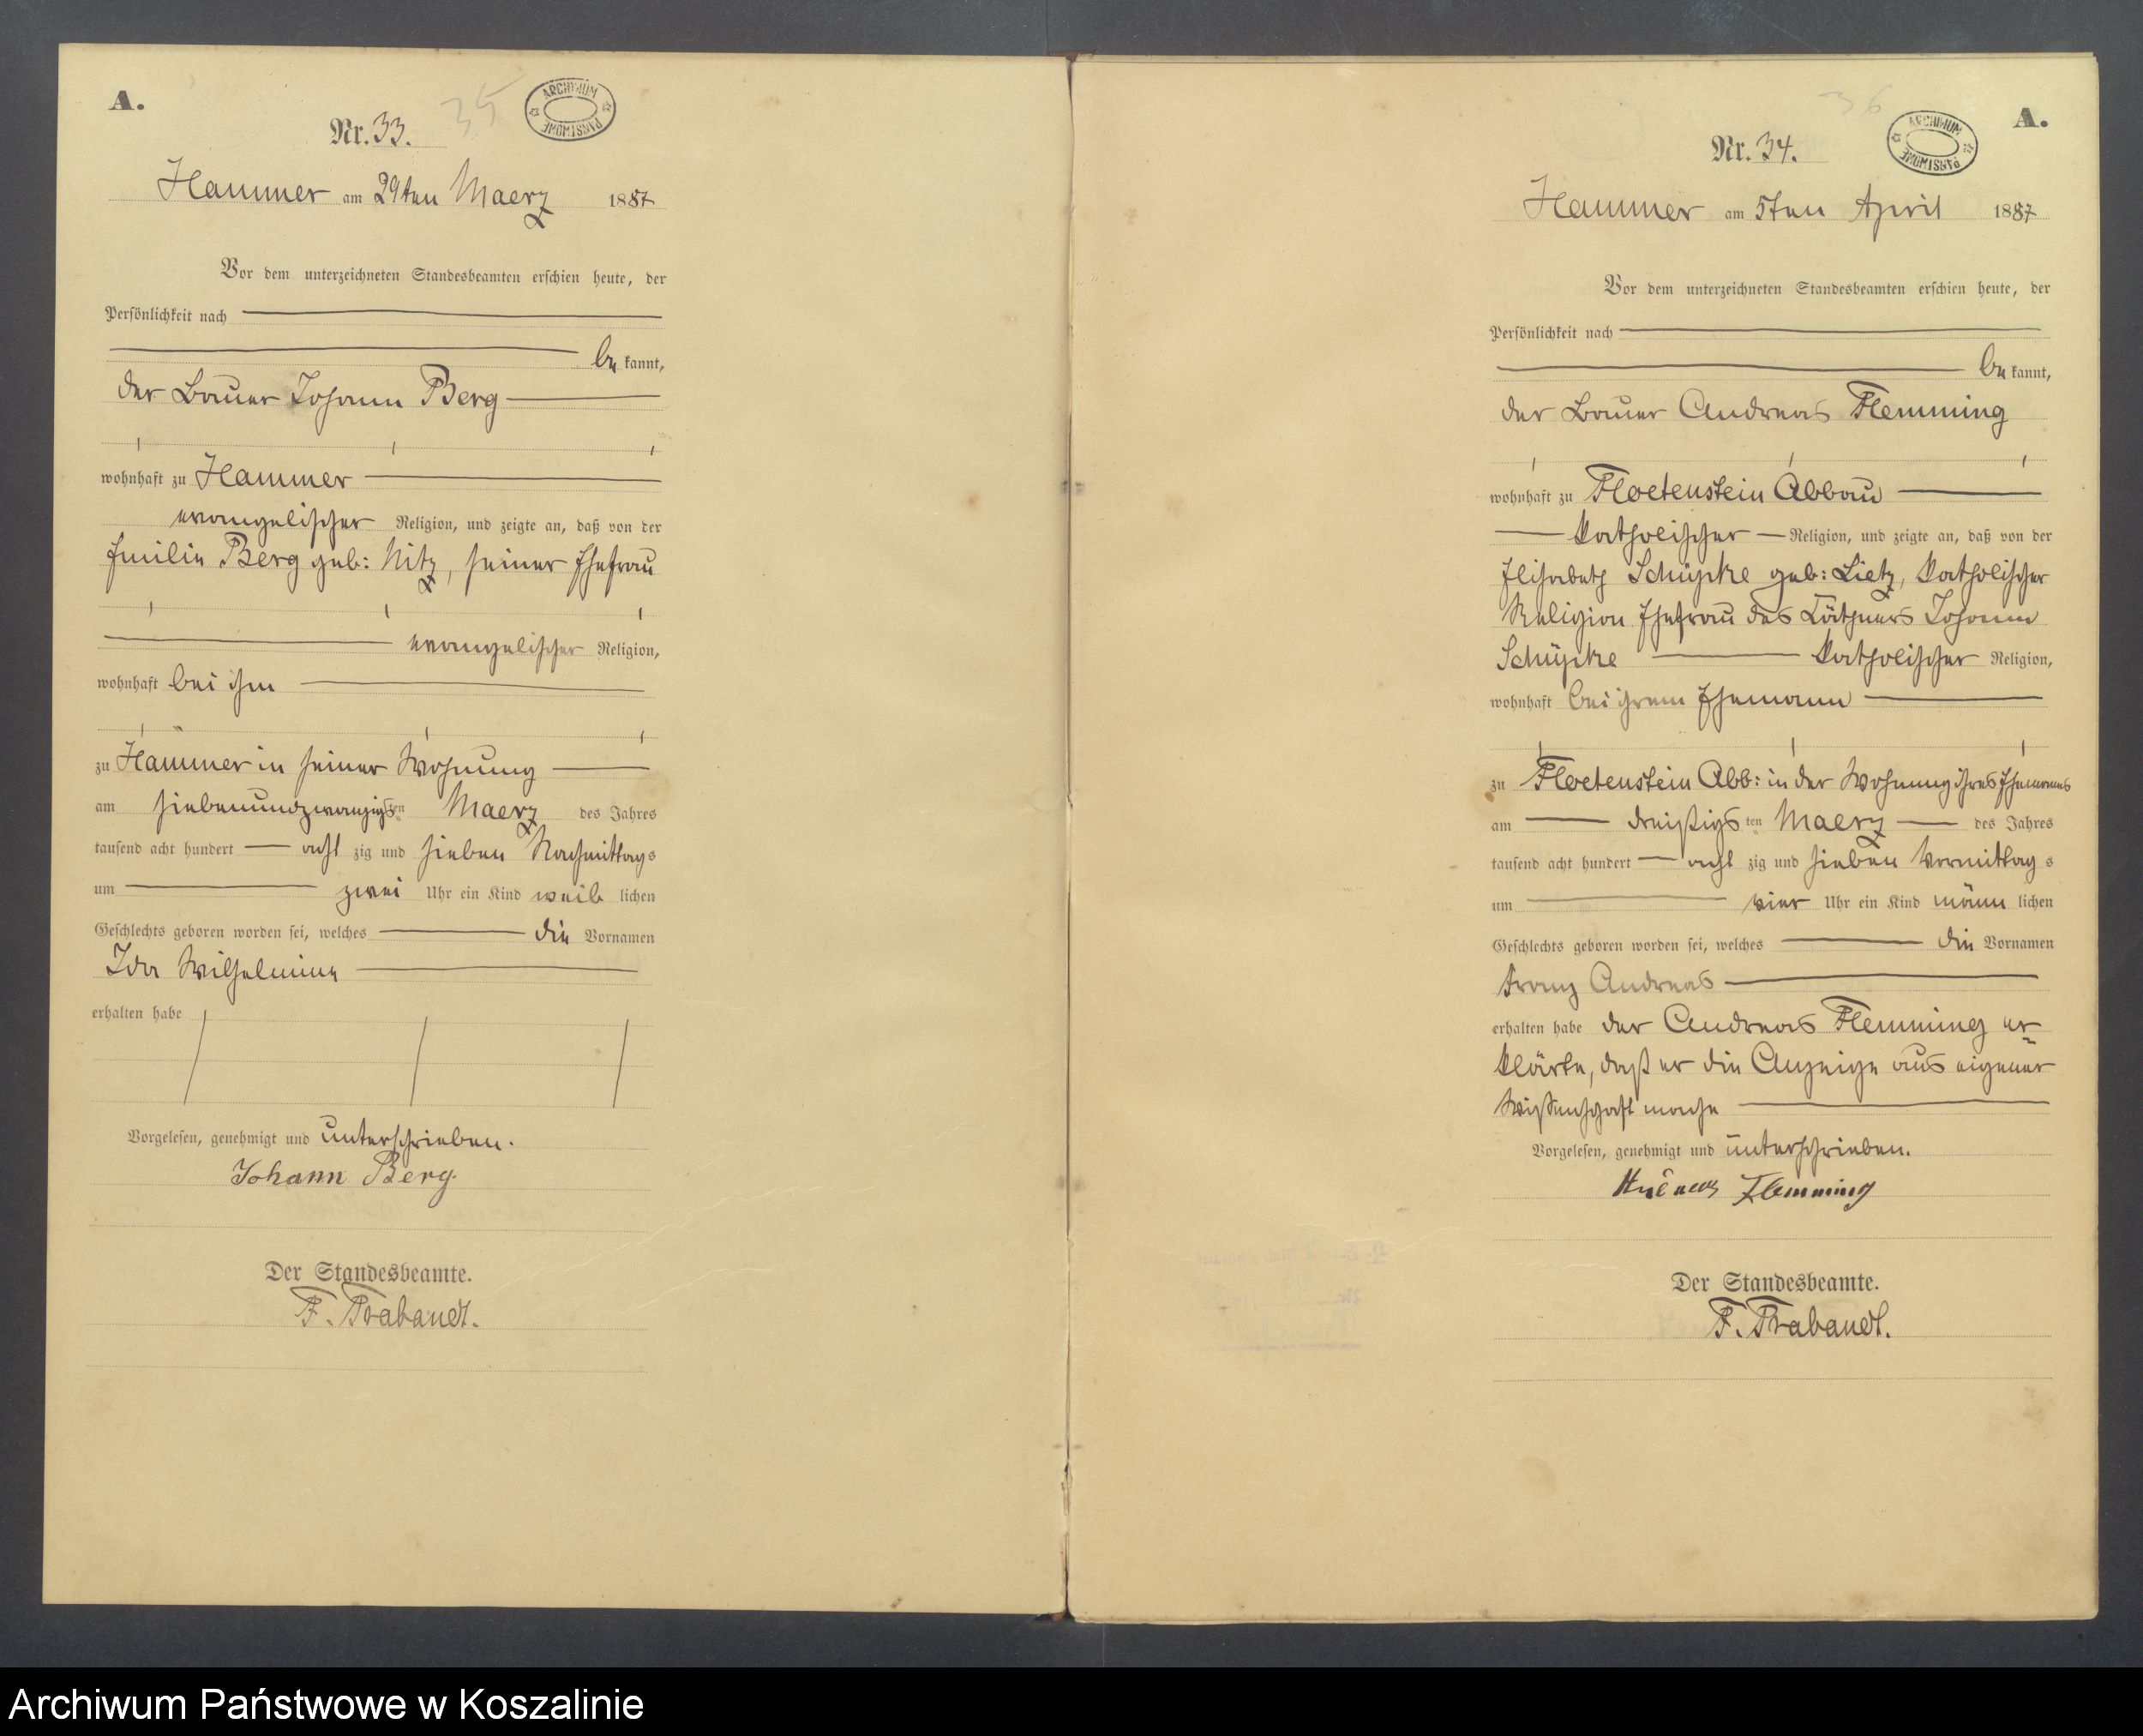 A.
Nr. 33.
35
ARCHIWUM PAŃSTWOWE
Hammer am 29ten Maerz 1887
Vor dem unterzeichneten Standesbeamten erschien heute, der
Persönlichkeit nach
be kannt,
der Bauer Johann Berg
wohnhaft zu Hammer
evangelischer Religion, und zeigte an, daß von der
Emilie Berg geb: Nitz, seiner Ehefrau
evangelischer Religion,
wohnhaft bei ihm
zu Hammer in seiner Wohnung
am siebenundzwanzigsten Maerz des Jahres
tausend acht hundert acht zig und sieben Nachmittags
um zwei Uhr ein Kind weib lichen
Geschlechts geboren worden sei, welches die Vornamen
Ida Wilhelmine
erhalten habe
Vorgelesen, genehmigt und unterschrieben.
Johann Berg.
Der Standesbeamte.
F. Brabandt.
A.
Nr. 34.
36
ARCHIWUM PAŃSTWOWE
Hammer am 5ten April 1887
Vor dem unterzeichneten Standesbeamten erschien heute, der
Persönlichkeit nach
be kannt,
der Bauer Andreas Flemming
wohnhaft zu Floetenstein Abbau
katholischer Religion, und zeigte an, daß von der
Elisabeth Schüpke geb: Lietz, katholischer
Religion Ehefrau des Käthners Johann
Schüpke katholischer Religion,
wohnhaft bei ihrem Ehemann
zu Floetenstein Abb: in der Wohnung ihres Ehemannes
am dreißigs ten Maerz des Jahres
tausend acht hundert acht zig und sieben Vormittag s
um vier Uhr ein Kind männ lichen
Geschlechts geboren worden sei, welches die Vornamen
Franz Andreas
erhalten habe der Andreas Flemming er
klärte, daß er die Anzeige aus eigener
Wißenschaft mache
Vorgelesen, genehmigt und unterschrieben.
Andreas Flemming
Der Standesbeamte.
F. Brabandt.
Archiwum Państwowe w Koszalinie